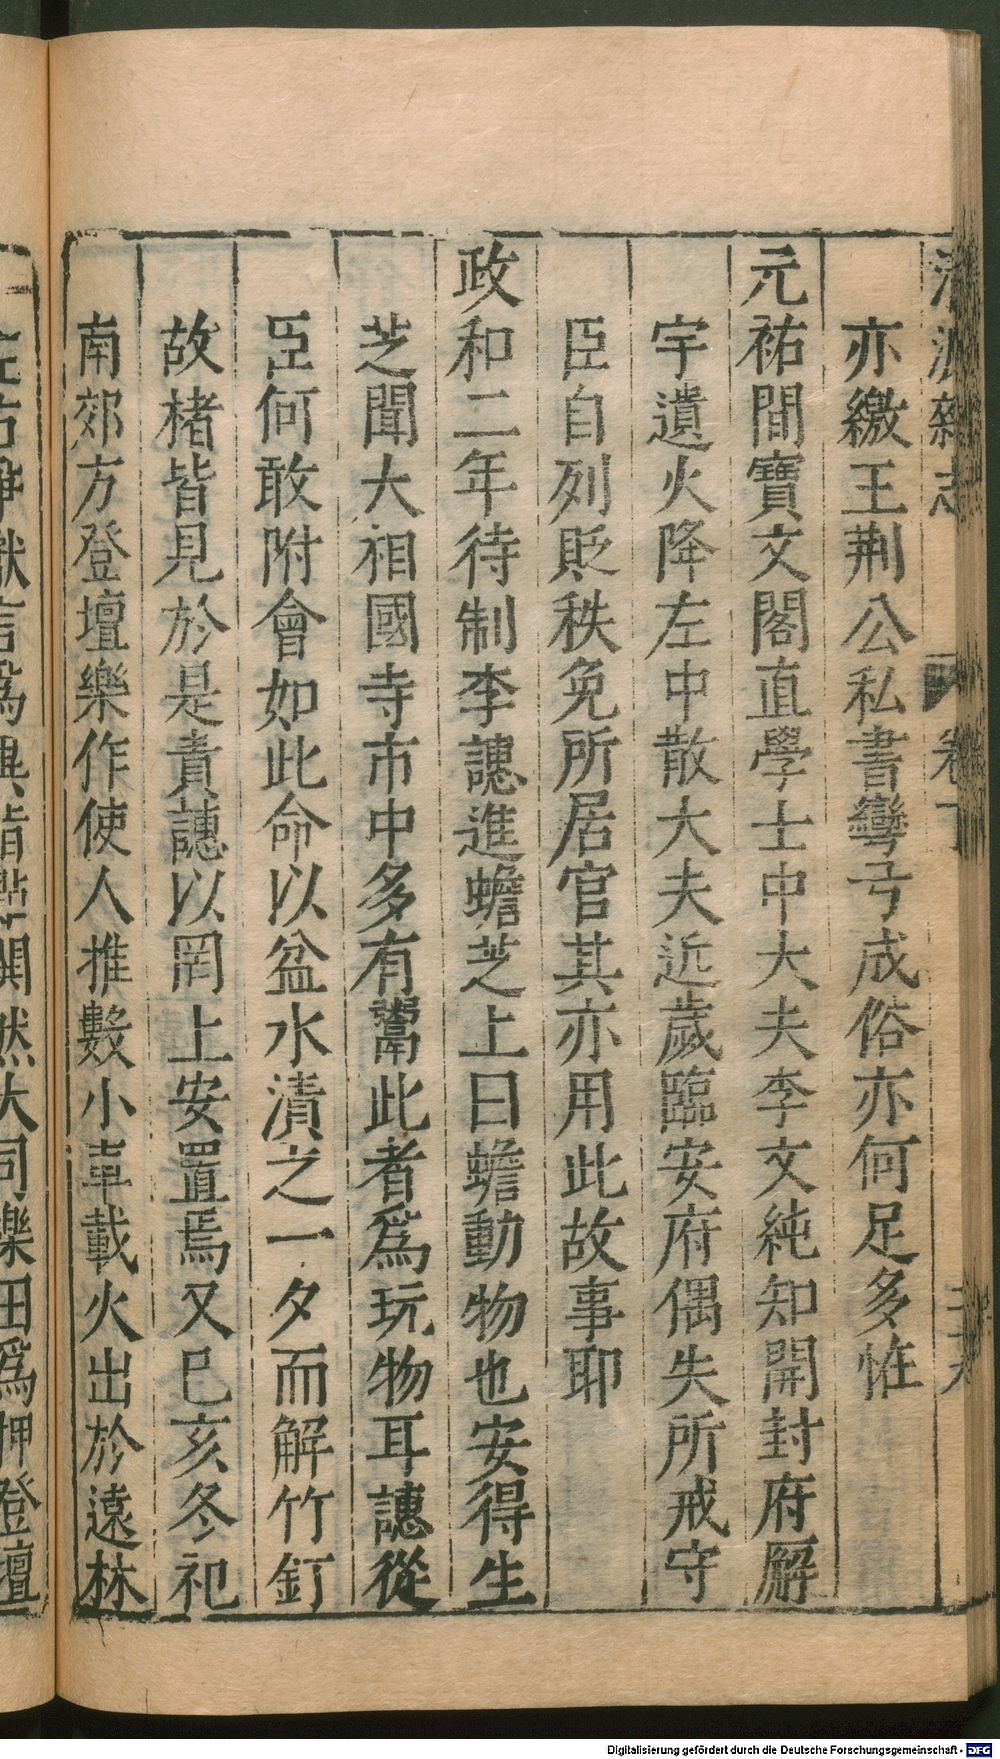 亦繳王荆公私書彎弓成俗亦何足多恠
元祐間寶文閣直學士中大夫李文純知開封府廨
宇遺火降左中散大夫近歲臨安府偶失所戒守
臣自列貶秩免所居官其亦用此故事耶
政和二年待制李譓進蟾芝上曰蟾動物也安得生
芝聞大相國寺市中多有鬻此者爲玩物耳譓從
臣何敢附會如此命以盆水漬之一夕而解竹釘
故楮皆見於是責譓以罔上安置焉又巳亥冬祀
南郊方登壇樂作使人推數小車載火出於遠林
Digitalisierung gefördert durch die Deutsche Forschungsgemeinschaft - DFG